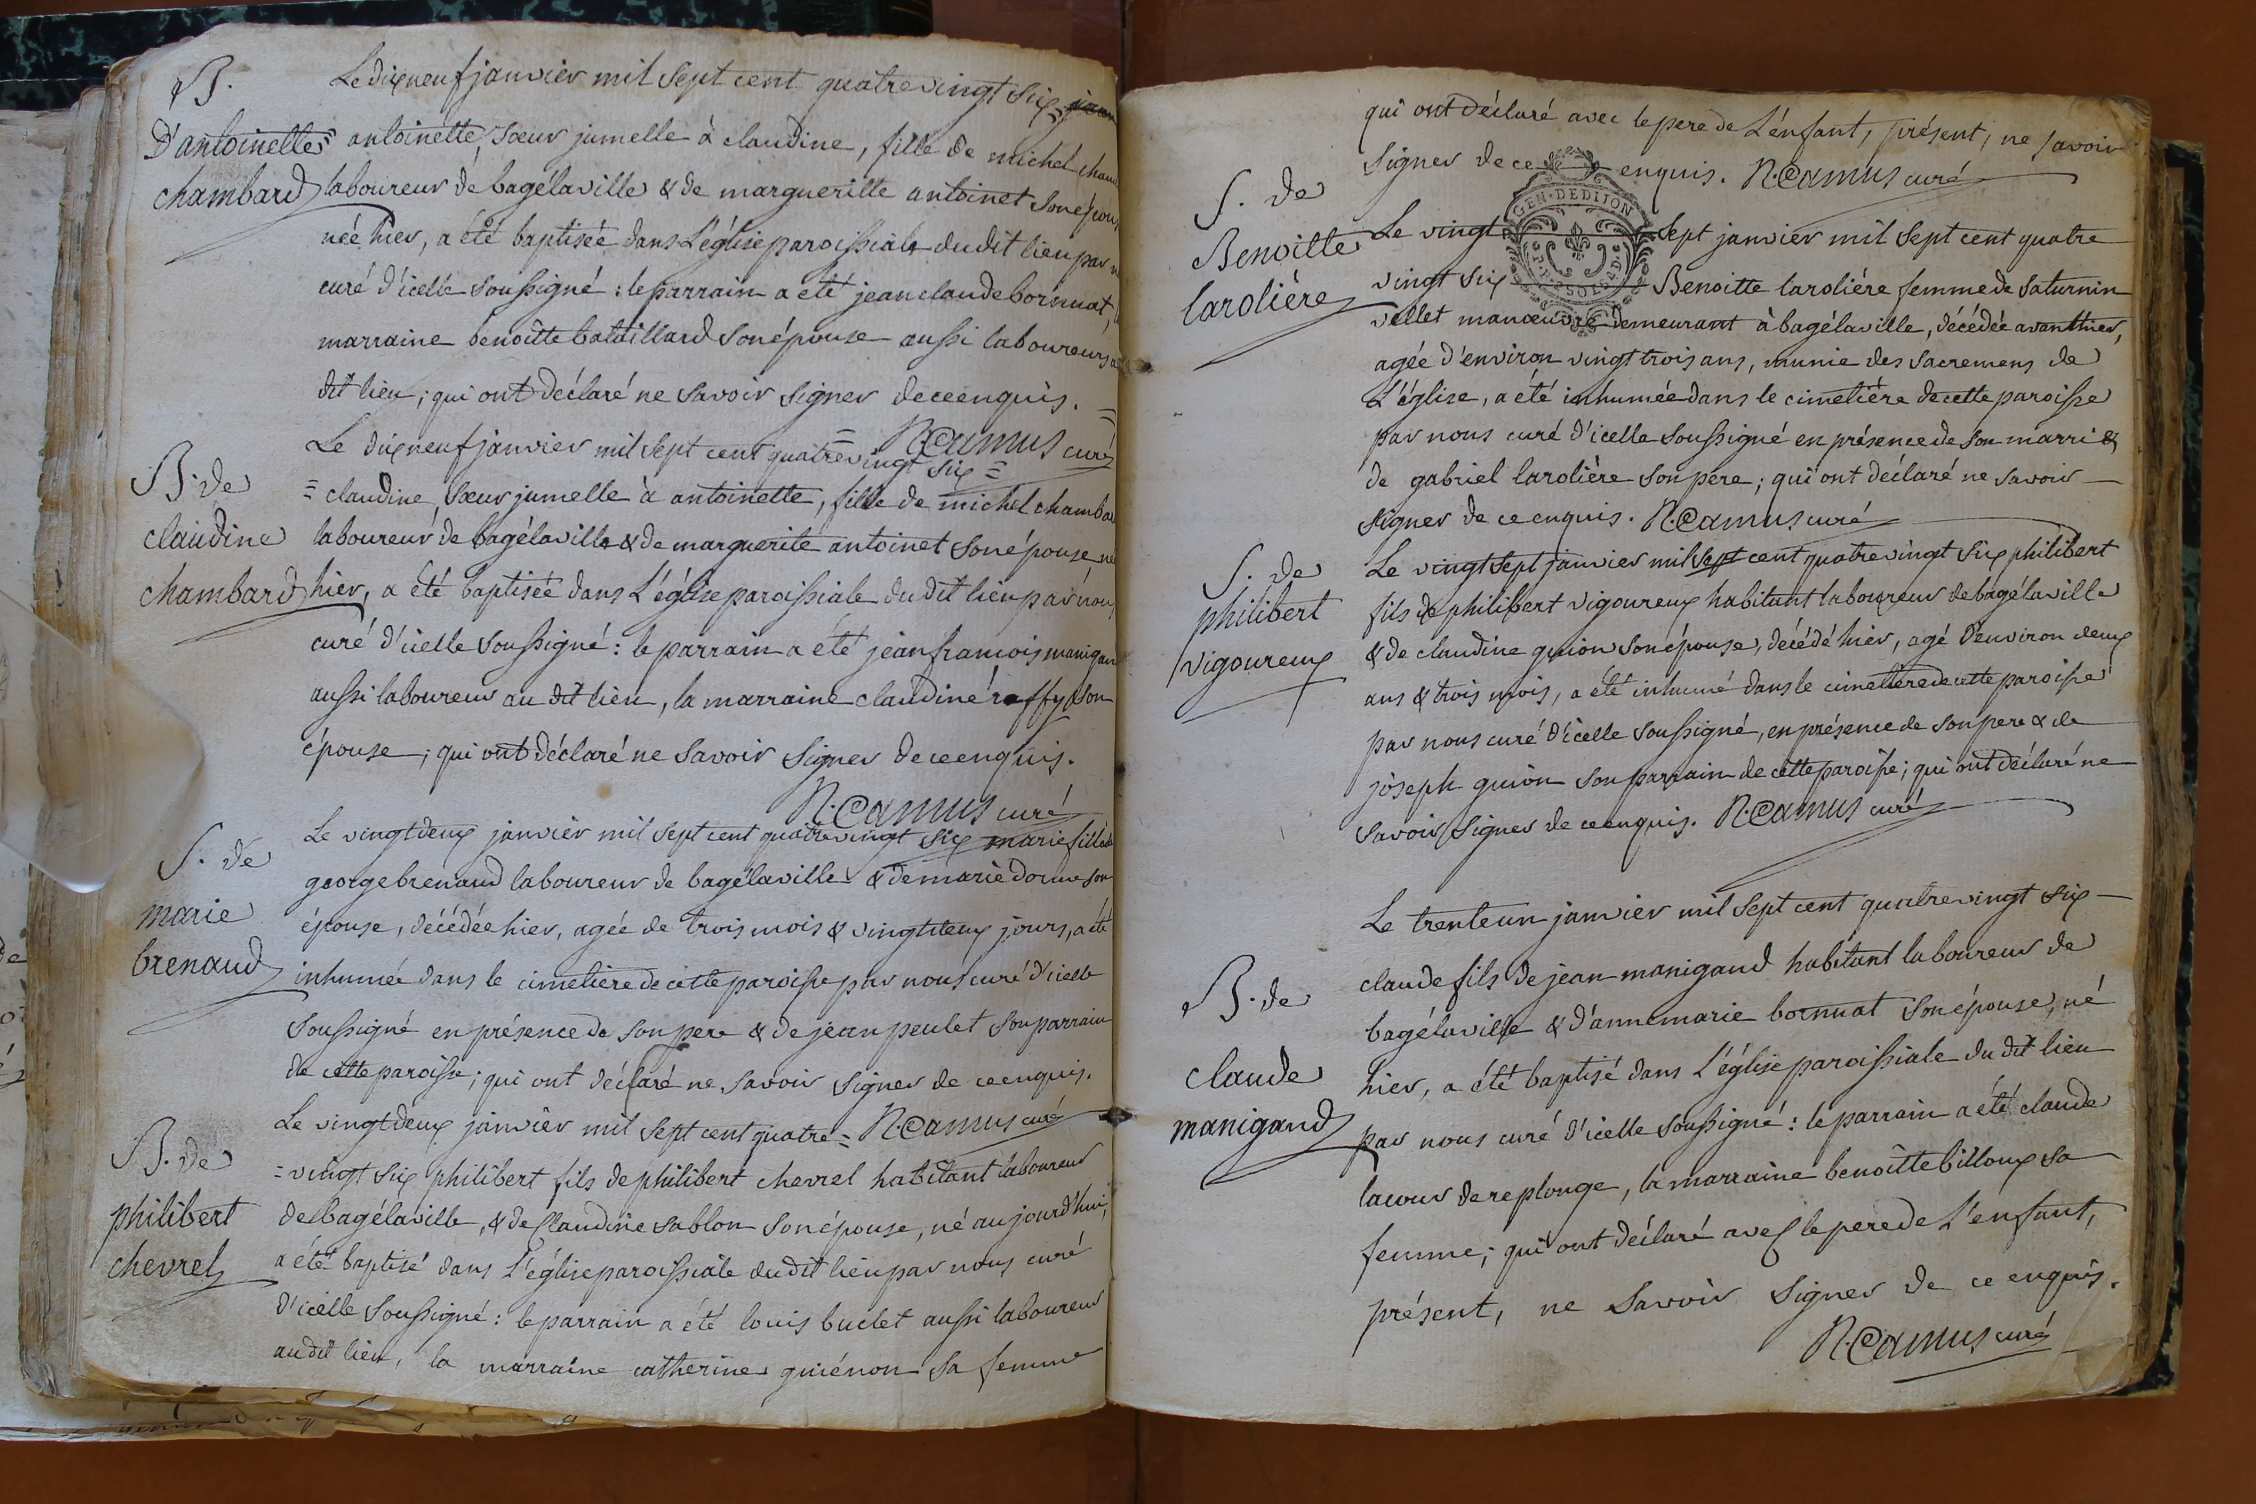 B.
D'antoinette
chambard
Le dix neuf janvier mil sept cent quatre vingt six
antoinette, sœur jumelle à claudine, fille de michel
laboureur de bagélaville & de margueritte antoinet son
née hier, a été baptisée dans L'église paroissiale dudit lieu par
curé d'icelle soussigné : le parrain a été jean claude bornuat,
marraine benoitte bataillard son épouse aussi laboureurs
dit lieu ; qui ont déclaré ne savoir signer de ce enquis. =
= N. Camus curé
B. de
claudine
chambard
Le dix neuf janvier mil sept cent quatre vingt six =
= claudine, sœur jumelle à antoinette, fille de michel
laboureur de bagélaville & de marguerite antoinet son épouse
hier, a été baptisée dans L'église paroissiale dudit lieu par nous
curé d'icelle soussigné : le parrain a été jean francois
aussi laboureur au dit lieu, la marraine claudine son
épouse ; qui ont déclaré ne savoir signer de ce enquis.
N. Camus curé
S. de
marie
brenaud
Le vingt deux janvier mil sept cent quatre vingt six marie fille de
george brenaud laboureur de bagélaville & de marie dorme son
épouse, décédée hier, agée de trois mois & vingt deux jours, a été
inhumée dans le cimetiere de cette paroisse par nous curé d'icelle
soussigné en présence de son pere & de jean peulet son parrain
de cette paroisse ; qui ont déclaré ne savoir signer de ce enquis.
N. Camus curé
B. de
philibert
chevrel
Le vingt deux janvier mil sept cent quatre =
= vingt six philibert fils de philibert chevrel habitant laboureur
de bagélaville, & de Claudine sablon son épouse, né aujourd'hui,
a été baptisé dans L'église paroissiale dudit lieu par nous curé
d'icelle soussigné : le parrain a été louis buclet aussi laboureur
au dit lieu, la marraine catherine guiénon sa femme
qui ont déclaré avec le pere de L'enfant, présent, ne savoir
signer de ce enquis. N. Camus curé
GEN. DE DIJON
S. de
Benoitte
larolière
Le vingt sept janvier mil sept cent quatre
vingt six Benoitte larolière femme de Saturnin
vellet manœuvre demeurant à bagélaville, décédée avant hier,
agée d'environ vingt trois ans, munie des sacremens de
L'église, a été inhumée dans le cimetière de cette paroisse
par nous curé d'icelle soussigné en présence de son marri &
de gabriel larolière son pere ; qui ont déclaré ne savoir
signer de ce enquis. N. Camus curé
S. de
philibert
vigoureux
Le vingt sept janvier mil sept cent quatre vingt six philibert
fils de philibert vigoureux habitant laboureur de bagélaville
& de claudine guion son épouse, décédé hier, agé d'environ deux
ans & trois mois, a été inhumé dans le cimetiere de cette paroisse
par nous curé d'icelle soussigné, en présence de son pere & de
joseph guion son parrain de cette paroisse ; qui ont déclaré ne
savoir signer de ce enquis. N. Camus curé
B. de
claude
manigand
Le trente un janvier mil sept cent quatre vingt six
claude fils de jean manigand habitant laboureur de
bagélaville & d'anne marie bornuat son épouse, né
hier, a été baptisé dans L'église paroissiale du dit lieu
par nous curé d'icelle soussigné : le parrain a été claude
lacour de replonge, la marraine benoitte billoux sa
femme ; qui ont déclaré avec le pere de L'enfant,
présent, ne savoir signer de ce enquis.
N. Camus curé